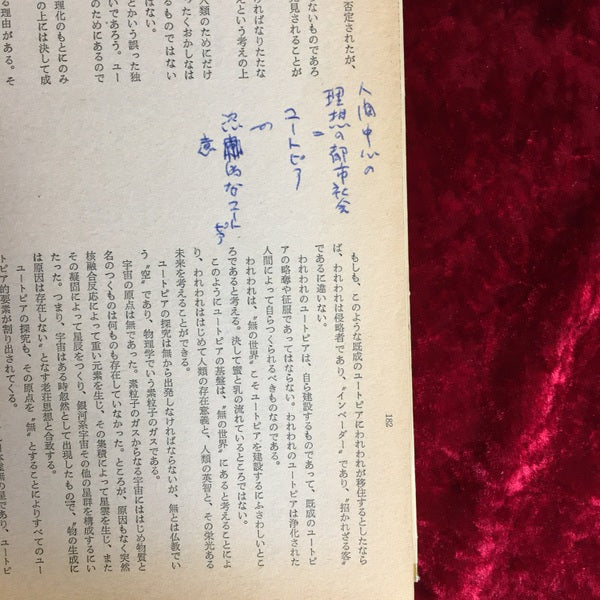 否定されたが、
ないものであろ
見されることが
ければなりたたな
えという考えの上
人類のためにだけ
ったくおかしなは
るものではない
はない。
とかいう誤った独
いであろう。ユー
のためにあるので
理化のもとにのみ
の上には決して成
理由がある。そ
人間中心の
理想の都市社会
＝
ユートピア
の
的なユート
ピア
意
182
もしも、このような既成のユートピアにわれわれが移住するとしたなら
ば、われわれは侵略者であり、〝インベーダー〟であり、〝招かれざる客〟
であるに違いない。
われわれのユートピアは、自ら建設するものであって、既成のユートピ
アの略奪や征服であってはならない。われわれのユートピアは浄化された
人間によって自らつくられるべきものなのである。
われわれは、〝無の世界〟こそユートピアを建設するにふさわしいとこ
ろであると考える。決して蜜と乳の流れているところではない。
このようにユートピアの基盤は、〝無の世界〟にあると考えることによ
り、われわれははじめて人類の存在意義と、人類の英智と、その栄光ある
未来を考えることができる。
ユートピアの探究は無から出発しなければならないが、無とは仏教でい
う〝空〟であり、物理学でいう素粒子のガスである。
宇宙の原点は無であった。素粒子のガスからなる宇宙にははじめ物質と
名のつくものは何ものも存在していなかった。ところが、原因もなく突然
核融合反応によって重い元素を生じ、その集積によって星雲を生じ、また
その凝固によって星辰をつくり、銀河系宇宙その他の星群を構成するにい
たった。つまり、宇宙はある時忽然として出現したもので、〝物の生成に
は原因は存在しない〟となす老荘思想と合致する。
ユートピアの探究も、その原点を〝無〟とすることによりすべてのユー
トピア的要素が割り出されてくる。